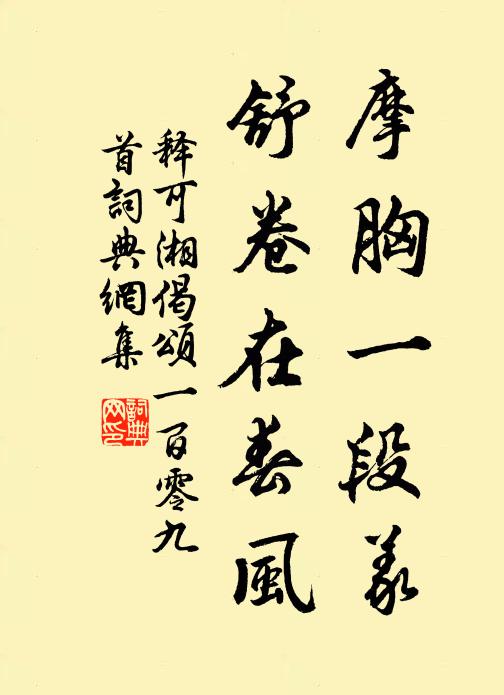 摩胸一段義
舒卷在春風
释可湘偈頌一百零九
首詞典網集
詞典
网印